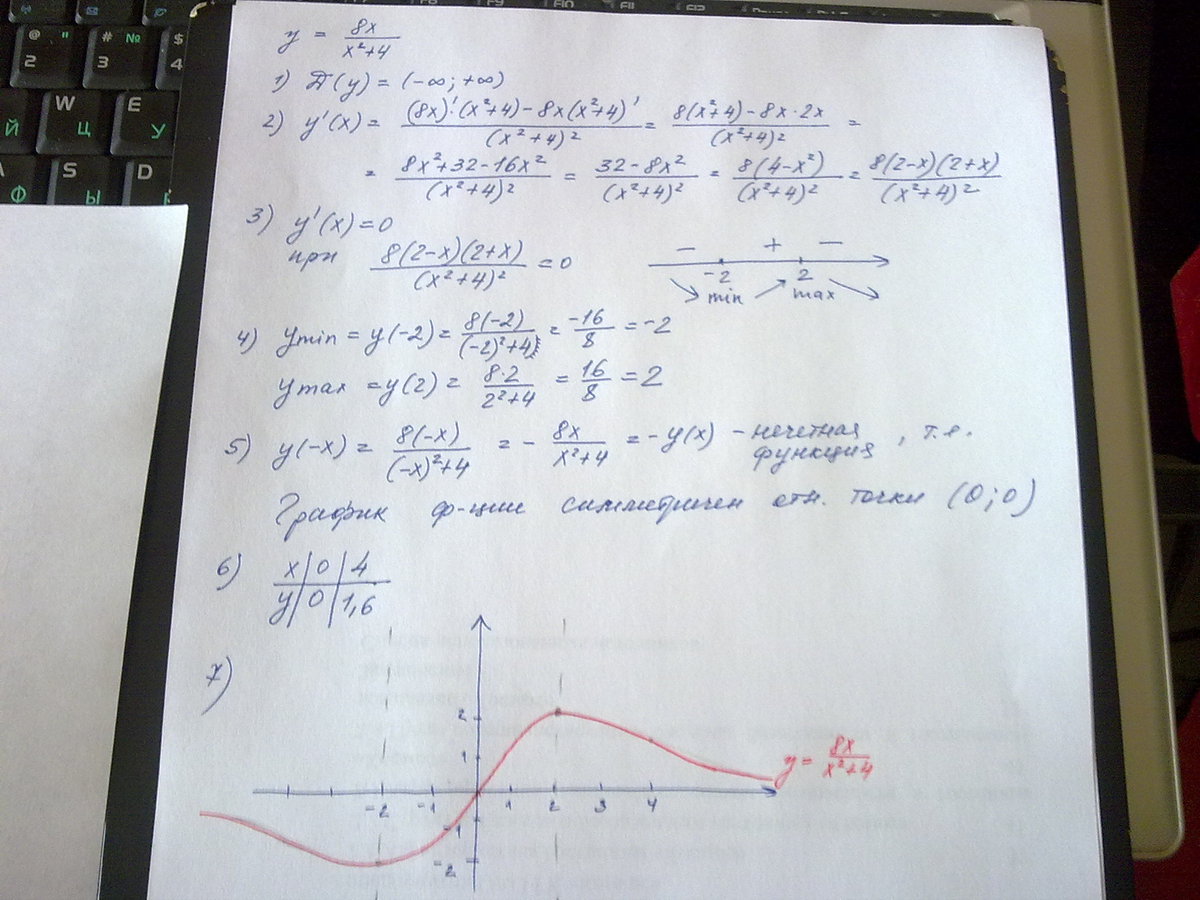 y = 8x/(x²+4)
1) D(y) = (-∞; +∞)
2) y'(x) = ((8x)'·(x²+4) - 8x(x²+4)')/(x²+4)² = (8(x²+4) - 8x·2x)/(x²+4)² =
= (8x²+32-16x²)/(x²+4)² = (32-8x²)/(x²+4)² = 8(4-x²)/(x²+4)² = 8(2-x)(2+x)/(x²+4)²
3) y'(x) = 0
при 8(2-x)(2+x)/(x²+4)² = 0
− + −
-2 2
min max
4) ymin = y(-2) = 8(-2)/((-2)²+4) = -16/8 = -2
ymax = y(2) = 8·2/(2²+4) = 16/8 = 2
5) y(-x) = 8(-x)/((-x)²+4) = - 8x/(x²+4) = -y(x) - нечетная функция, т.е.
График ф-ции симметричен отн. точки (0;0)
6) x | 0 | 4
y | 0 | 1,6
7)
2
1
-2 -1 1 2 3 4
-1
-2
y = 8x/(x²+4)
@ " 2
# № 3
$ 4
W Ц
E У
Й
S Ы
D
Ф
F9 F10 F11